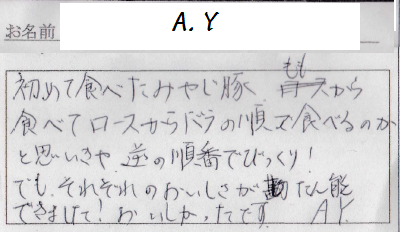 お名前 A.Y
初めて食べたみやじ豚 ももから
食べてロースからバラの順で食べるのか
と思いきや 逆の順番でびっくり!
でも、それぞれのおいしさが勘たん能
できまして! おいしかったです A.Y.